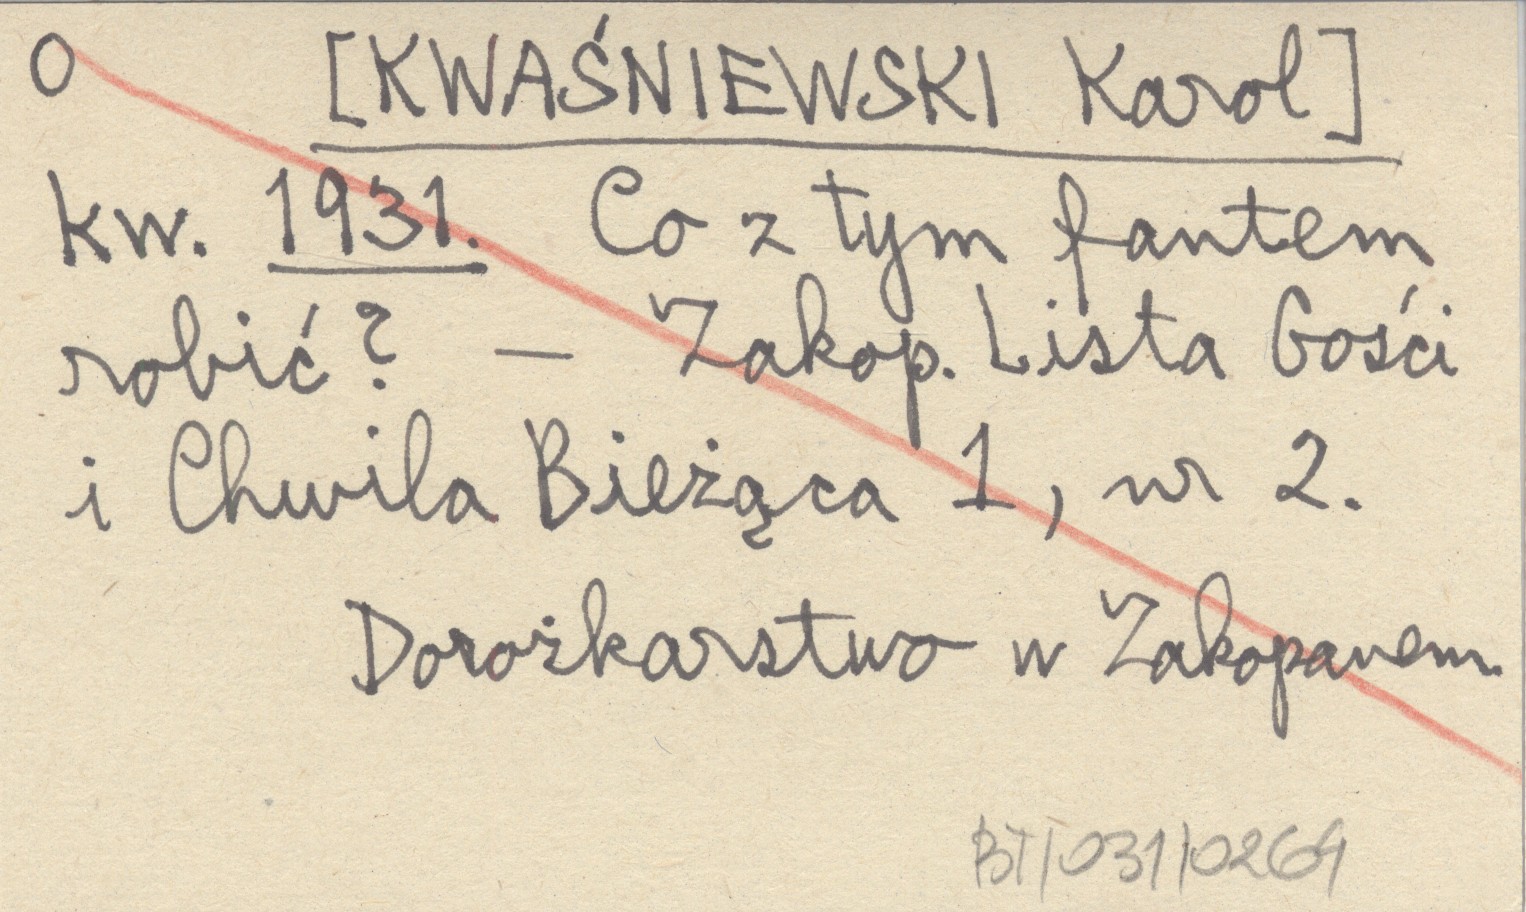 O [KWAŚNIEWSKI Karol]
kw. 1931. Co z tym fantem
robić? — Zakop. Lista Gości
i Chwila Bieżąca 1, nr 2.
Dorożkarstwo w Zakopanem.
BT/031/0264